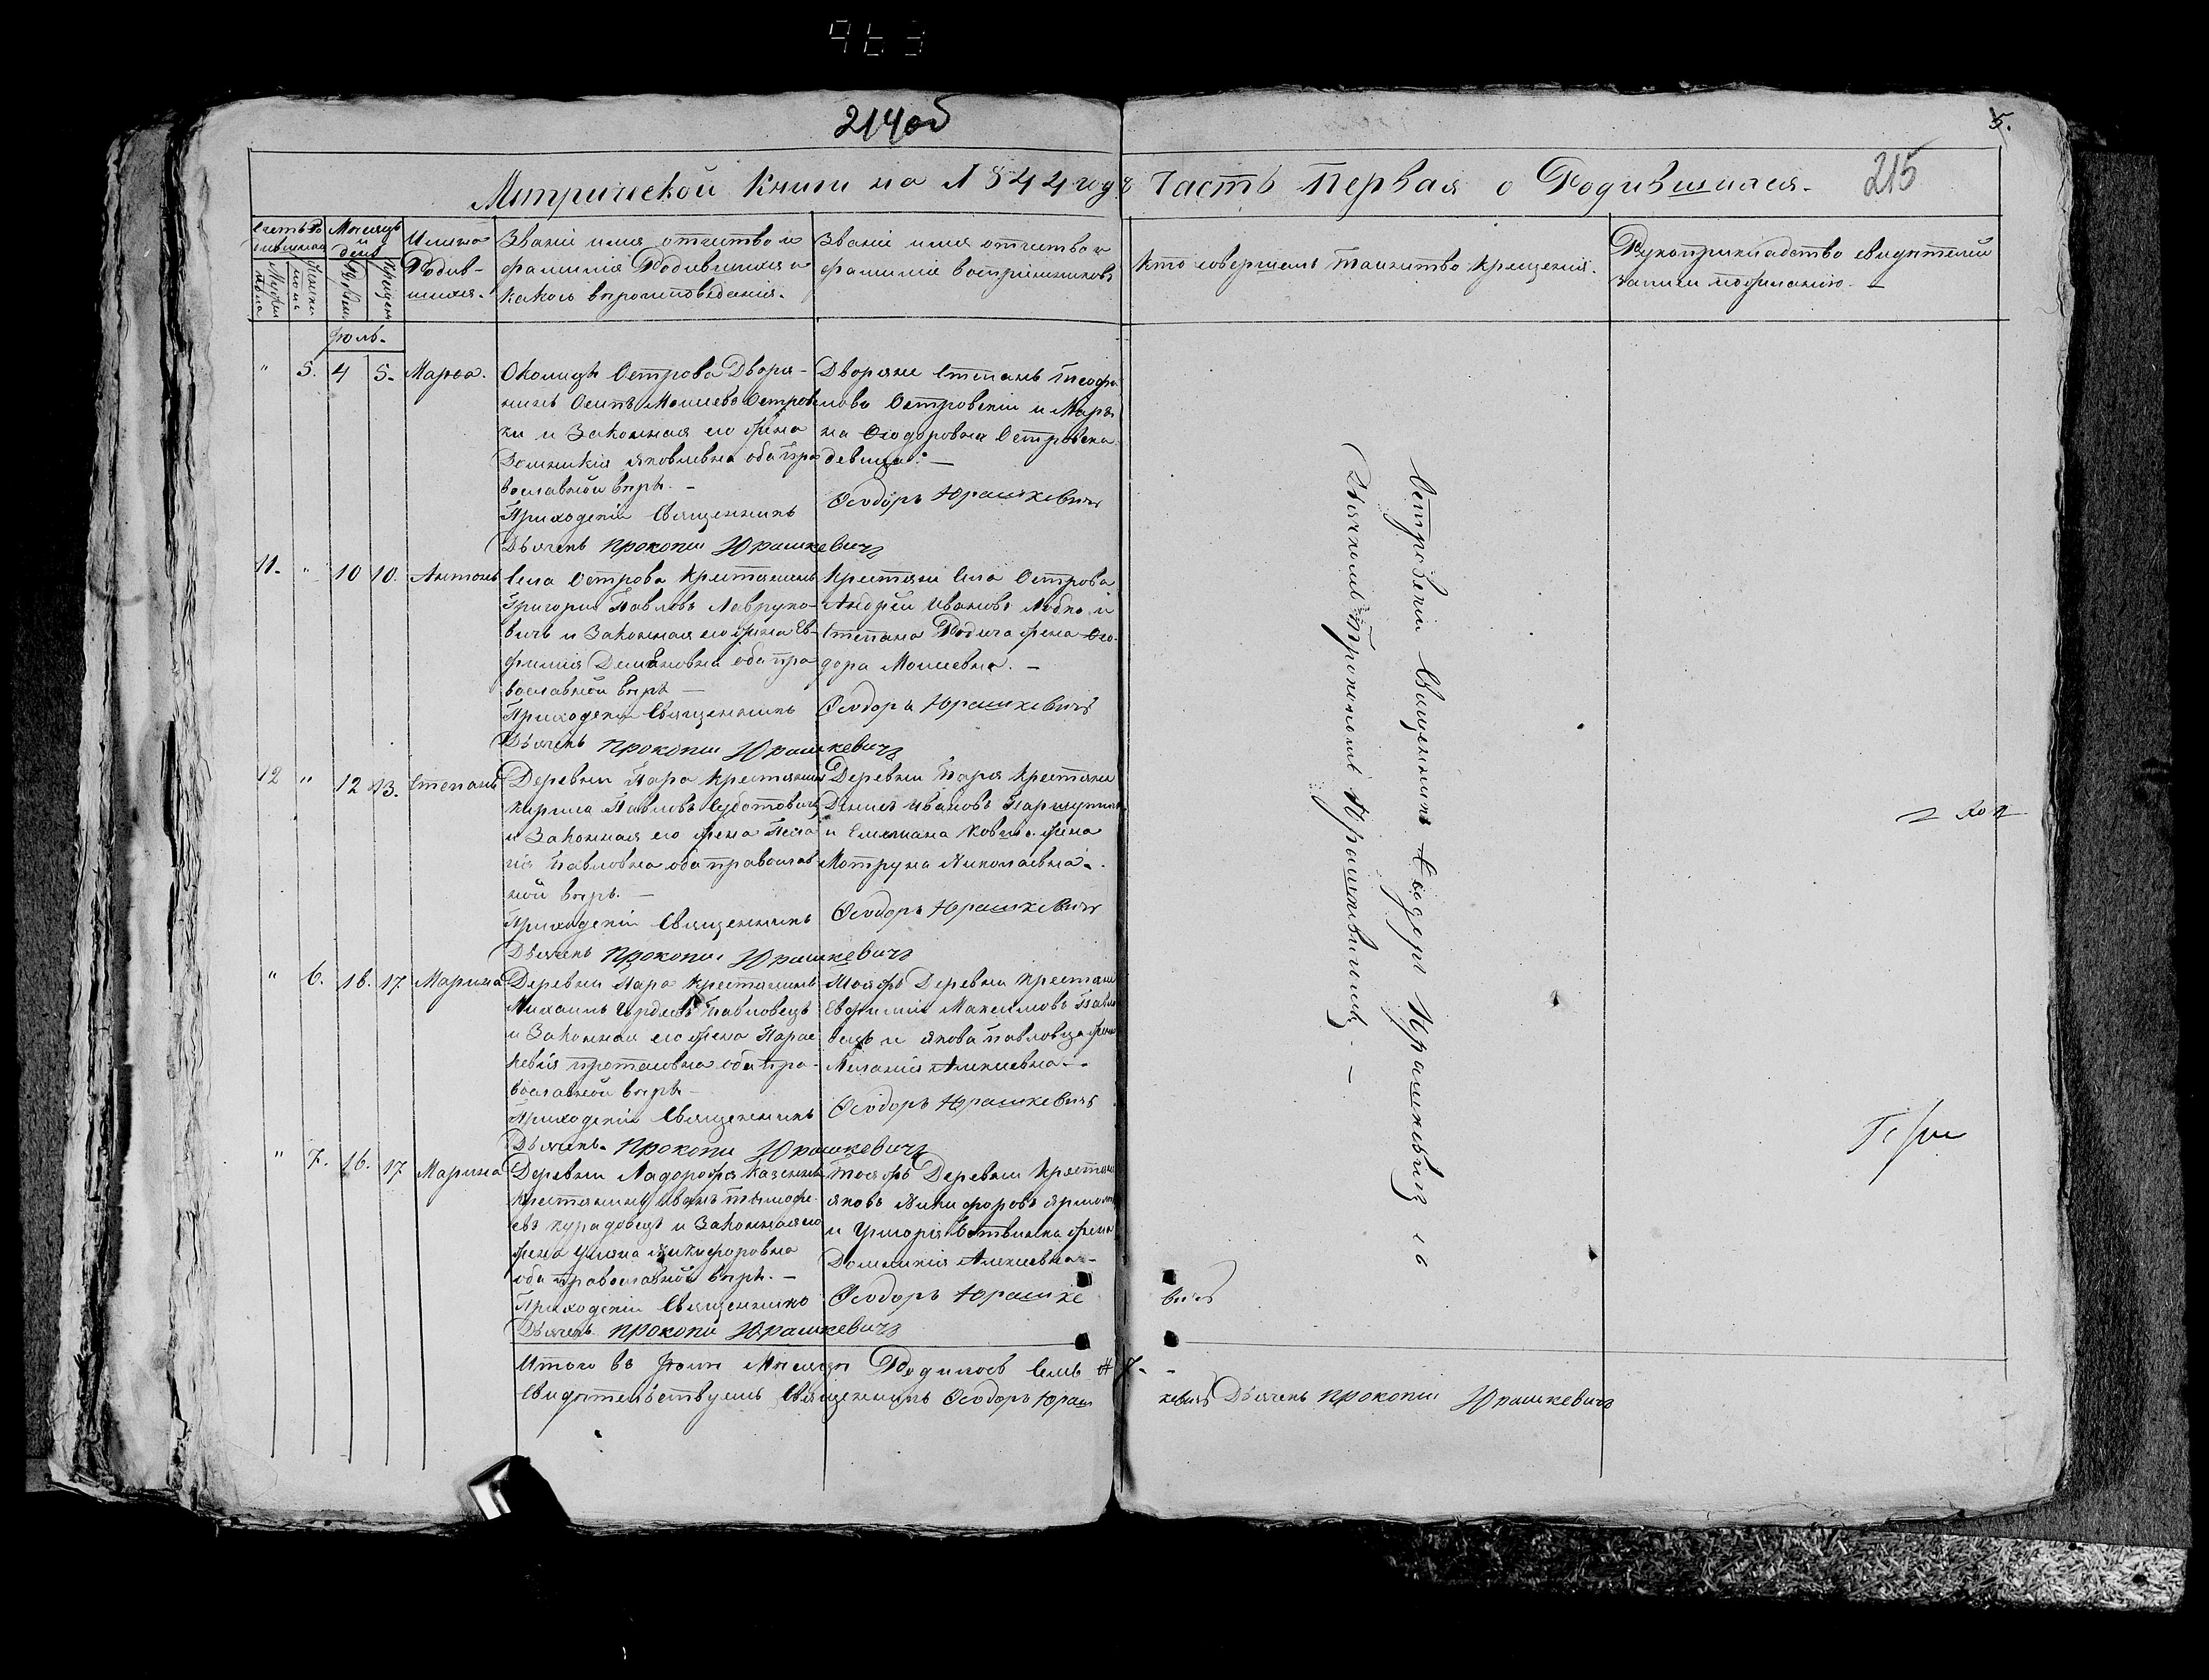 963
214 об
5.
215
Метрической Книги на 1844 годъ Часть Первая о Родившихся.
Счетъ Родившихся
Мужеска пола
Женска пола
Месяцъ и день
Рожденія
Крещенія
Имена Родив-
шихся.
Званіе имя отчество и
фамилія Родителей и
какого вероисповеданія.
Званіе имя отчество и
фамилія воспріемниковъ
Кто совершалъ таинство крещенія.
Рукоприкладство свидетелей
записи по желанію. —
" 5. 4 5. Марѳа.
Околицы Острова Дворя-
нинъ Осипъ Моисеевъ Островс
кій и Законная его жена
Яковлевна оба пра
вославной веры. —
Приходскій Священникъ
Дьячекъ Прокопій Юрашкевичъ
Дворяне Степанъ
Островскій и Марь
на Ѳеодоровна Островска
девица. —
Ѳеодоръ Юрашкевичъ
11. " 10 10. Антонъ
Села Острова Крестьянинъ
Григорій Павловъ Лавруко-
вичъ и Законная его жена Ев-
фимія Демьяновна оба пра
вославной веры —
Приходскій Священникъ
Дьячекъ Прокопій Юрашкевичъ
Крестьяне Села Острова
Андрей Ивановъ Лобко и
Степана Родича жена Ѳео-
дора Моисеевна. —
Ѳеодоръ Юрашкевичъ
12 " 12 13. Степанъ
Деревни Пара Крестьянинъ
Кирила Павловъ Суботовичъ
и Законная его жена Пела
гія Павловна оба православ
ной веры. —
Приходскій Священникъ
Дьячекъ Прокопій Юрашкевичъ
Деревни Паря Крестьяне
Денисъ Ивановъ
и Емельяна жена
Мотруна Николаевна.
Ѳеодоръ Юрашкевичъ
" 6. 16. 17 Марина
Деревни Пара Крестьянинъ
Михаилъ Павловецъ
и Законная его жена Парас
кевія оба пра-
вославной веры —
Приходскій Священникъ
Дьячекъ Прокопій Юрашкевичъ
Тояжъ Деревни Крестьяне
Евфимій Максимовъ Павло
вецъ и Якова Павловца жена
Меланія Алексіевна —
Ѳеодоръ Юрашкевичъ
" 7. 16. 17 Марина
Деревни Ладорожа Казенный
Крестьянинъ Иванъ Тимофе-
евъ и Законная его
жена Уляна Никифоровна
оба православной веры. —
Приходскій Священникъ
Дьячекъ Прокопій Юрашкевичъ
Тояжъ Деревни Крестьяне
Яковъ Никифоровъ
и Григорія жена
Алексіевна —
Ѳеодоръ Юрашке
вичъ
Итого въ месяце Родилось Семь # 7. —
Свидетельствуемъ Священникъ Ѳеодоръ Юраш
кевичъ Дьячекъ Прокопій Юрашкевичъ
Островскій Священникъ Ѳеодоръ Юрашкевичъ съ
Дьячкомъ Прокопіемъ Юрашкевичемъ. —